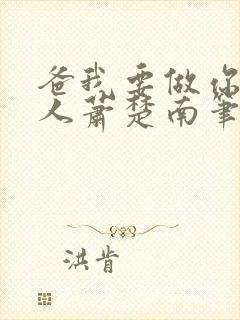 爸我要做你
人萧楚南笔
洪肯